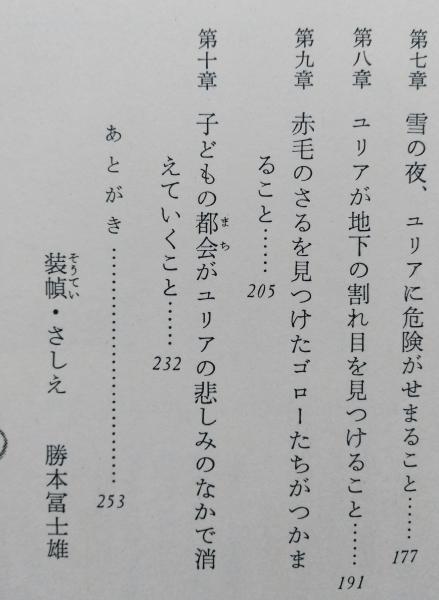 第七章　雪の夜、ユリアに危険がせまること……177
第八章　ユリアが地下の割れ目を見つけること……191
第九章　赤毛のさるを見つけたゴローたちがつかま
ること……205
第十章　子どもの都会がユリアの悲しみのなかで消
まち
えていくこと……232
あとがき……………………………253
装幀・さしえ　勝本冨士雄
そうてい